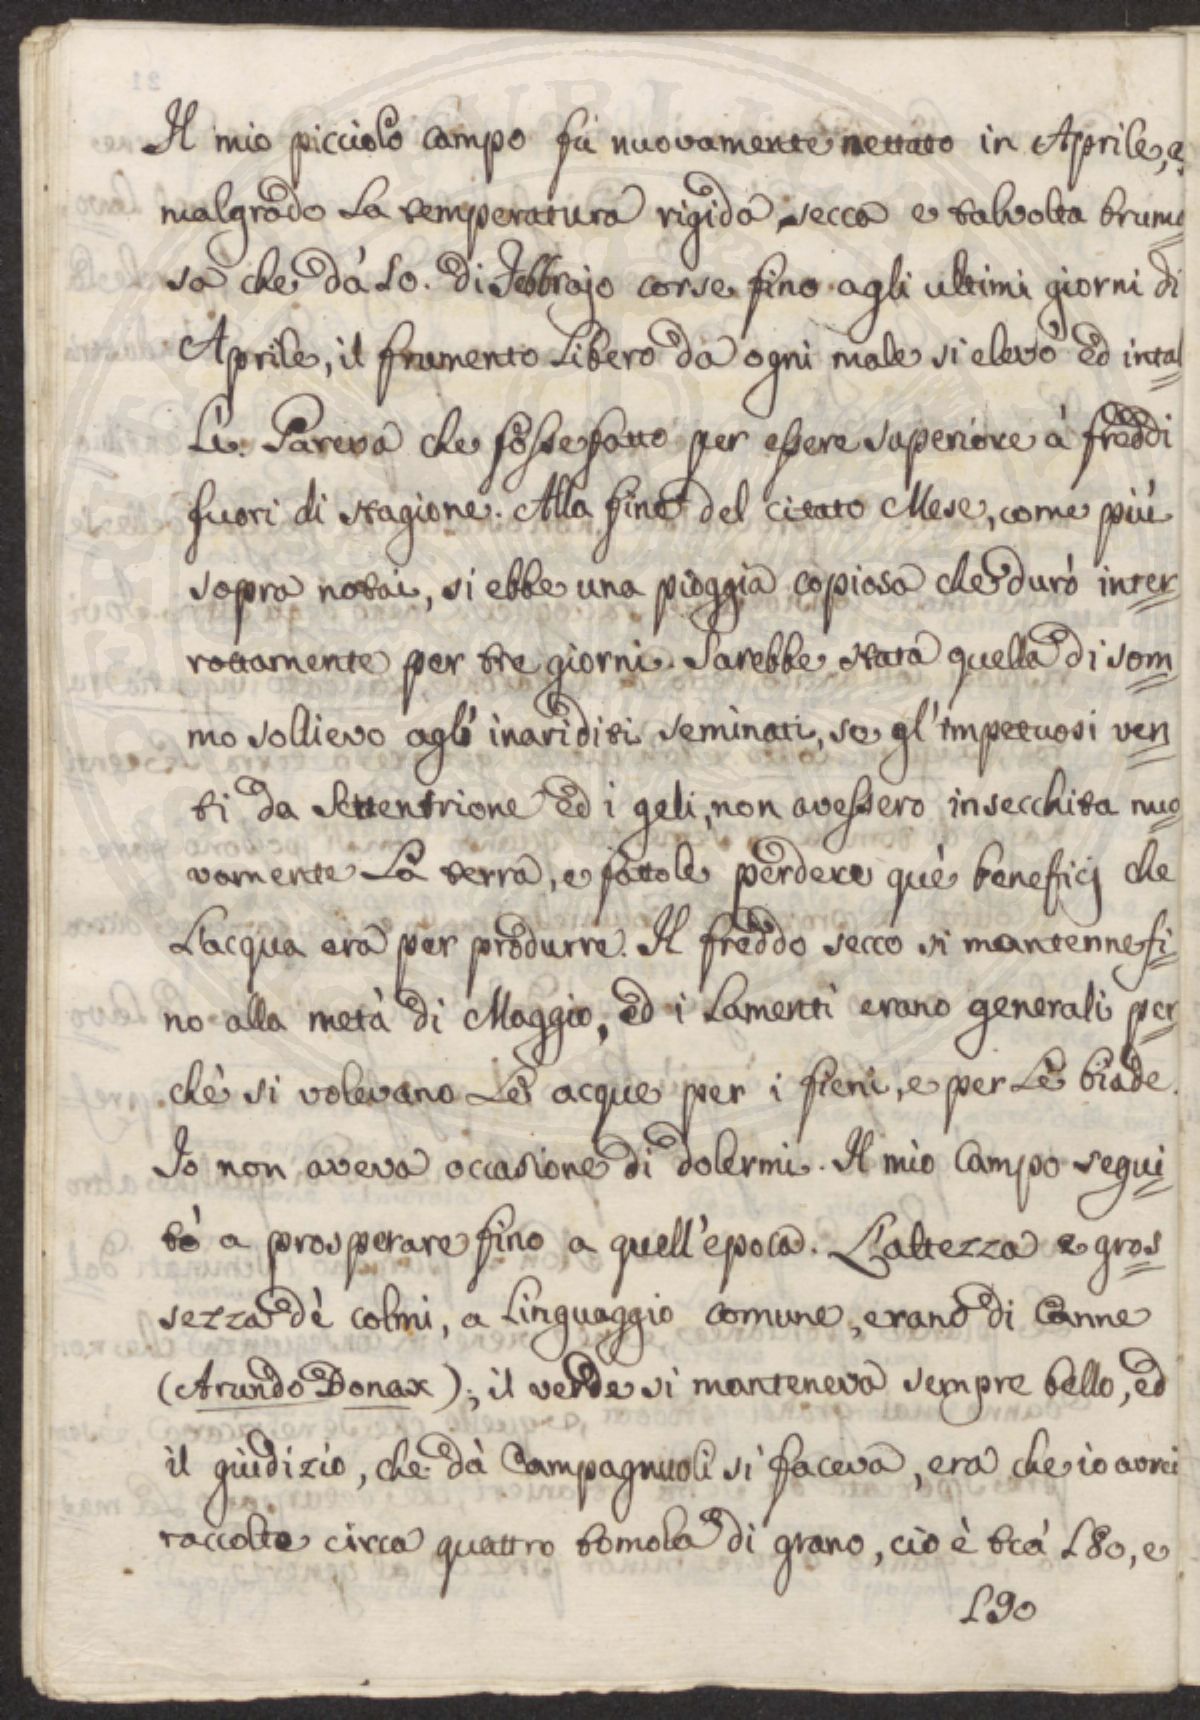 Il mio picciolo campo fù nuovamente nettato in Aprile, e
malgrado la temperatura rigida, secca e talvolta brumo
sa che dà 10. di Febbrajo corse fino agli ultimi giorni di
Aprile, il frumento libero da ogni male si elevò ed intal
lì. Pareva che fosse fatto per essere superiore à freddi
fuori di stagione. Alla fine del citato Mese, come più
sopra notai, si ebbe una pioggia copiosa che durò inter
rottamente per tre giorni. Sarebbe stata quella di som
mo sollievo agl' inariditi seminati, se gl'impetuosi ven
ti da Settentrione ed i geli, non avessero insecchita nuo
vamente la terra, e fattole perdere què beneficj che
l'acqua era per produrre. Il freddo secco si mantenne fi
no alla metà di Maggio, ed i lamenti erano generali per
chè si volevano le acque per i fieni, e per le biade.
Io non aveva occasione di dolermi. Il mio Campo segui
tò a prosperare fino a quell'epoca. L'altezza e gros
sezza dè colmi, a linguaggio comune, erano di Canne
(Arundo Donax); il verde si manteneva sempre bello, ed
il giudizio, che dà Campagnuoli si faceva, era che io avrei
raccolto circa quattro tomola di grano, cio è trà 180, e
190